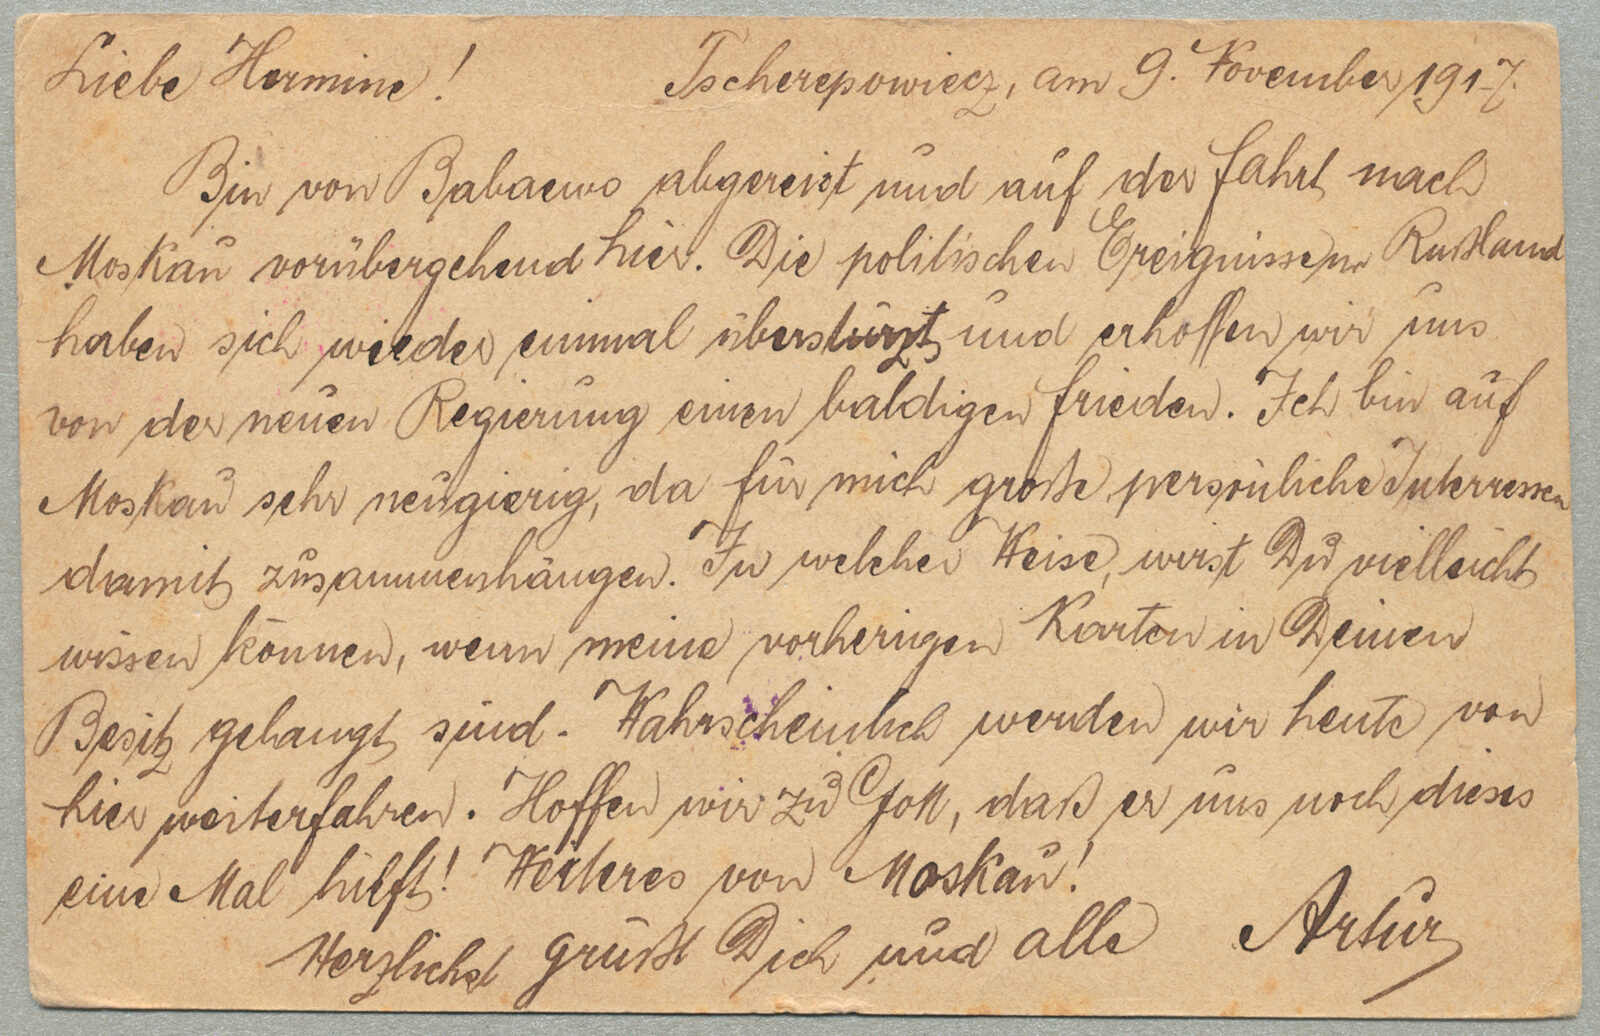 Liebe Hermine! Tscherepowiecz, am 9. November 1917.
Bin von Babaewo abgereist und auf der Fahrt nach
Moskau vorübergehend hier. Die politischen Ereignisse in Rußland
haben sich wieder einmal überstürzt und erhoffen wir uns
von der neuen Regierung einen baldigen Frieden. Ich bin auf
Moskau sehr neugierig, da für mich große persönliche Interressen
damit zusammenhängen. In welcher Weise, wirst Du vielleicht
wissen können, wenn meine vorherigen Karten in Deinen
Besitz gelangt sind. Wahrscheinlich werden wir heute von
hier weiterfahren. Hoffen wir zu Gott, daß er uns noch dieses
eine Mal hilft! Weiteres von Moskau!
Herzlichst grüßt Dich und alle Artur